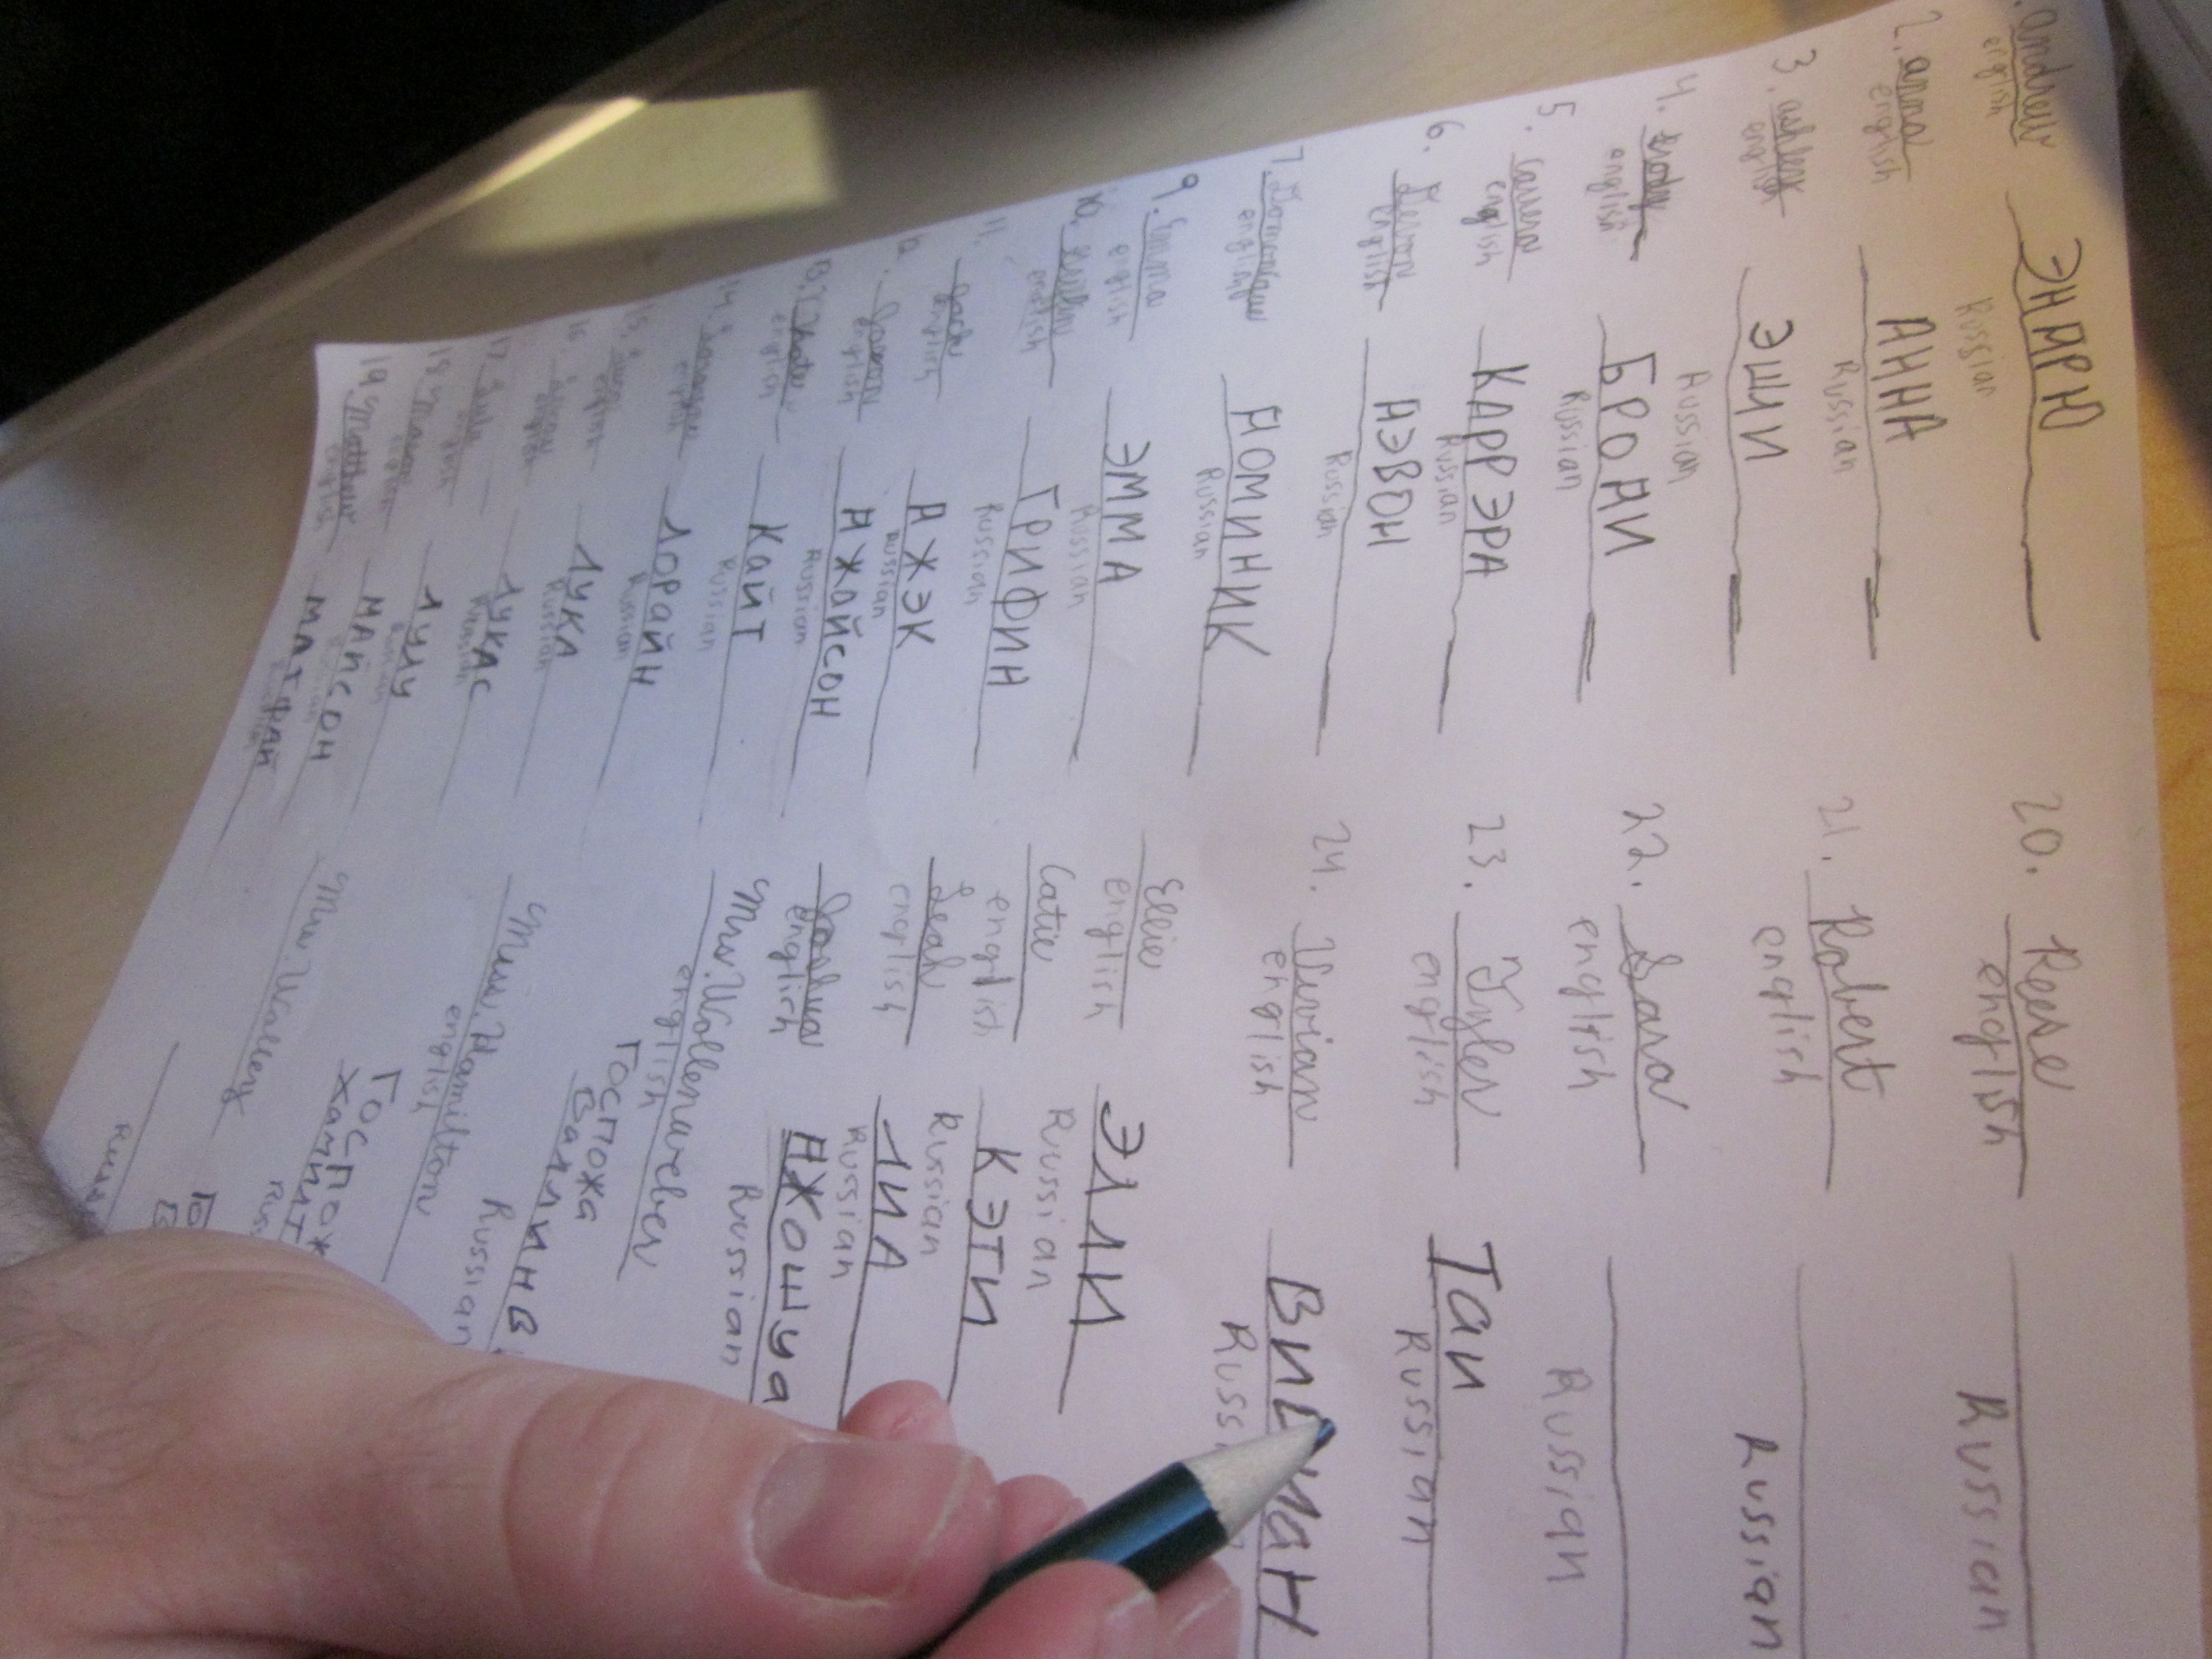 andrew ЭНДРЮ
english Russian
2. anna АННА
english Russian
3. ashley ЭШЛИ
english Russian
4. БРОДИ
english Russian
5. Carrera КАРРЭРА
english Russian
6. Devon ДЭВОН
english Russian
7. Dominique ДОМИНИК
english Russian
9. Emma ЭММА
english Russian
10. Griffin ГРИФИН
english Russian
11. Jack ДЖЭК
english Russian
12. Jason ДЖАЙСОН
english Russian
13. Кайт
english Russian
14. Лорайн
english Russian
15. ЛУКА
english Russian
16. ЛУКАС
english Russian
17. Lulu ЛУЛУ
18. Mason МАЙСОН
19. Matthew
english
20. Reese
english Russian
21. Robert
english Russian
22. Sara
english Russian
23. Tyler Таи
english Russian
24. Vivian
english
Ellie ЭЛЛИ
english Russian
Catie КЭТИ
english Russian
Leah ЛИА
english Russian
Joshua ДЖОШУа
english Russian
Mrs. Wollenweber Госпожа
english
Miss. Hamilton Госпож
english